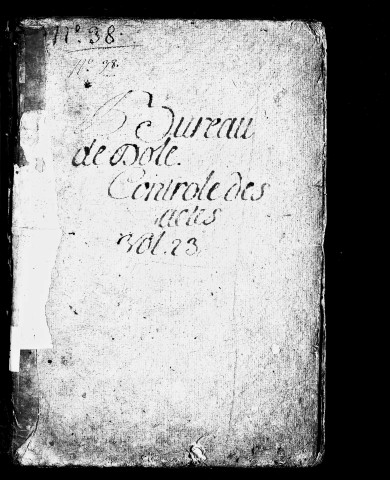 N.o 38.
N.o 98.
Bureau
de Dole.
Controle des
actes
Vol. 23